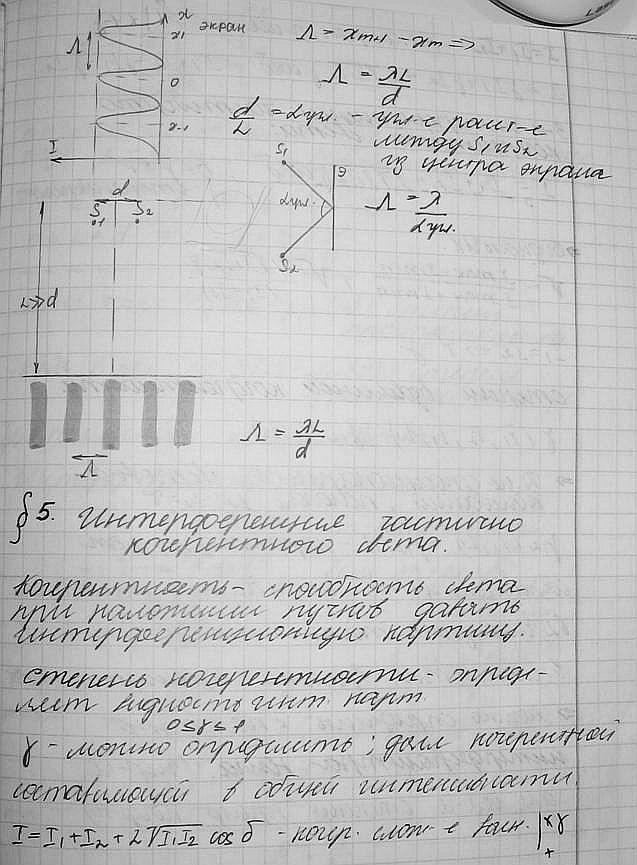 x
x₁
экран
Λ
0
x₋₁
I
Λ = xₘ₊₁ − xₘ ⇒
Λ = λL/d
d/L = αугл. – угл-е расст-е
между S₁ и S₂
из центра экрана
S₁
Э
αугл.
S₂
Λ = λ/αугл.
d
S₁ S₂
L≫d
Λ
Λ = λL/d
§ 5. Интерференция частично
когерентного света.
Когерентность – способность света
при наложении пучков давать
интерференционную картину.
Степень когерентности – опреде-
ляет видность инт. карт.
0 ≤ γ ≤ 1
γ – можно определить; доля когерентной
составляющей в общей интенсивности.
I = I₁ + I₂ + 2√I₁I₂ cos δ – когер. слож-е волн. | ×γ
+